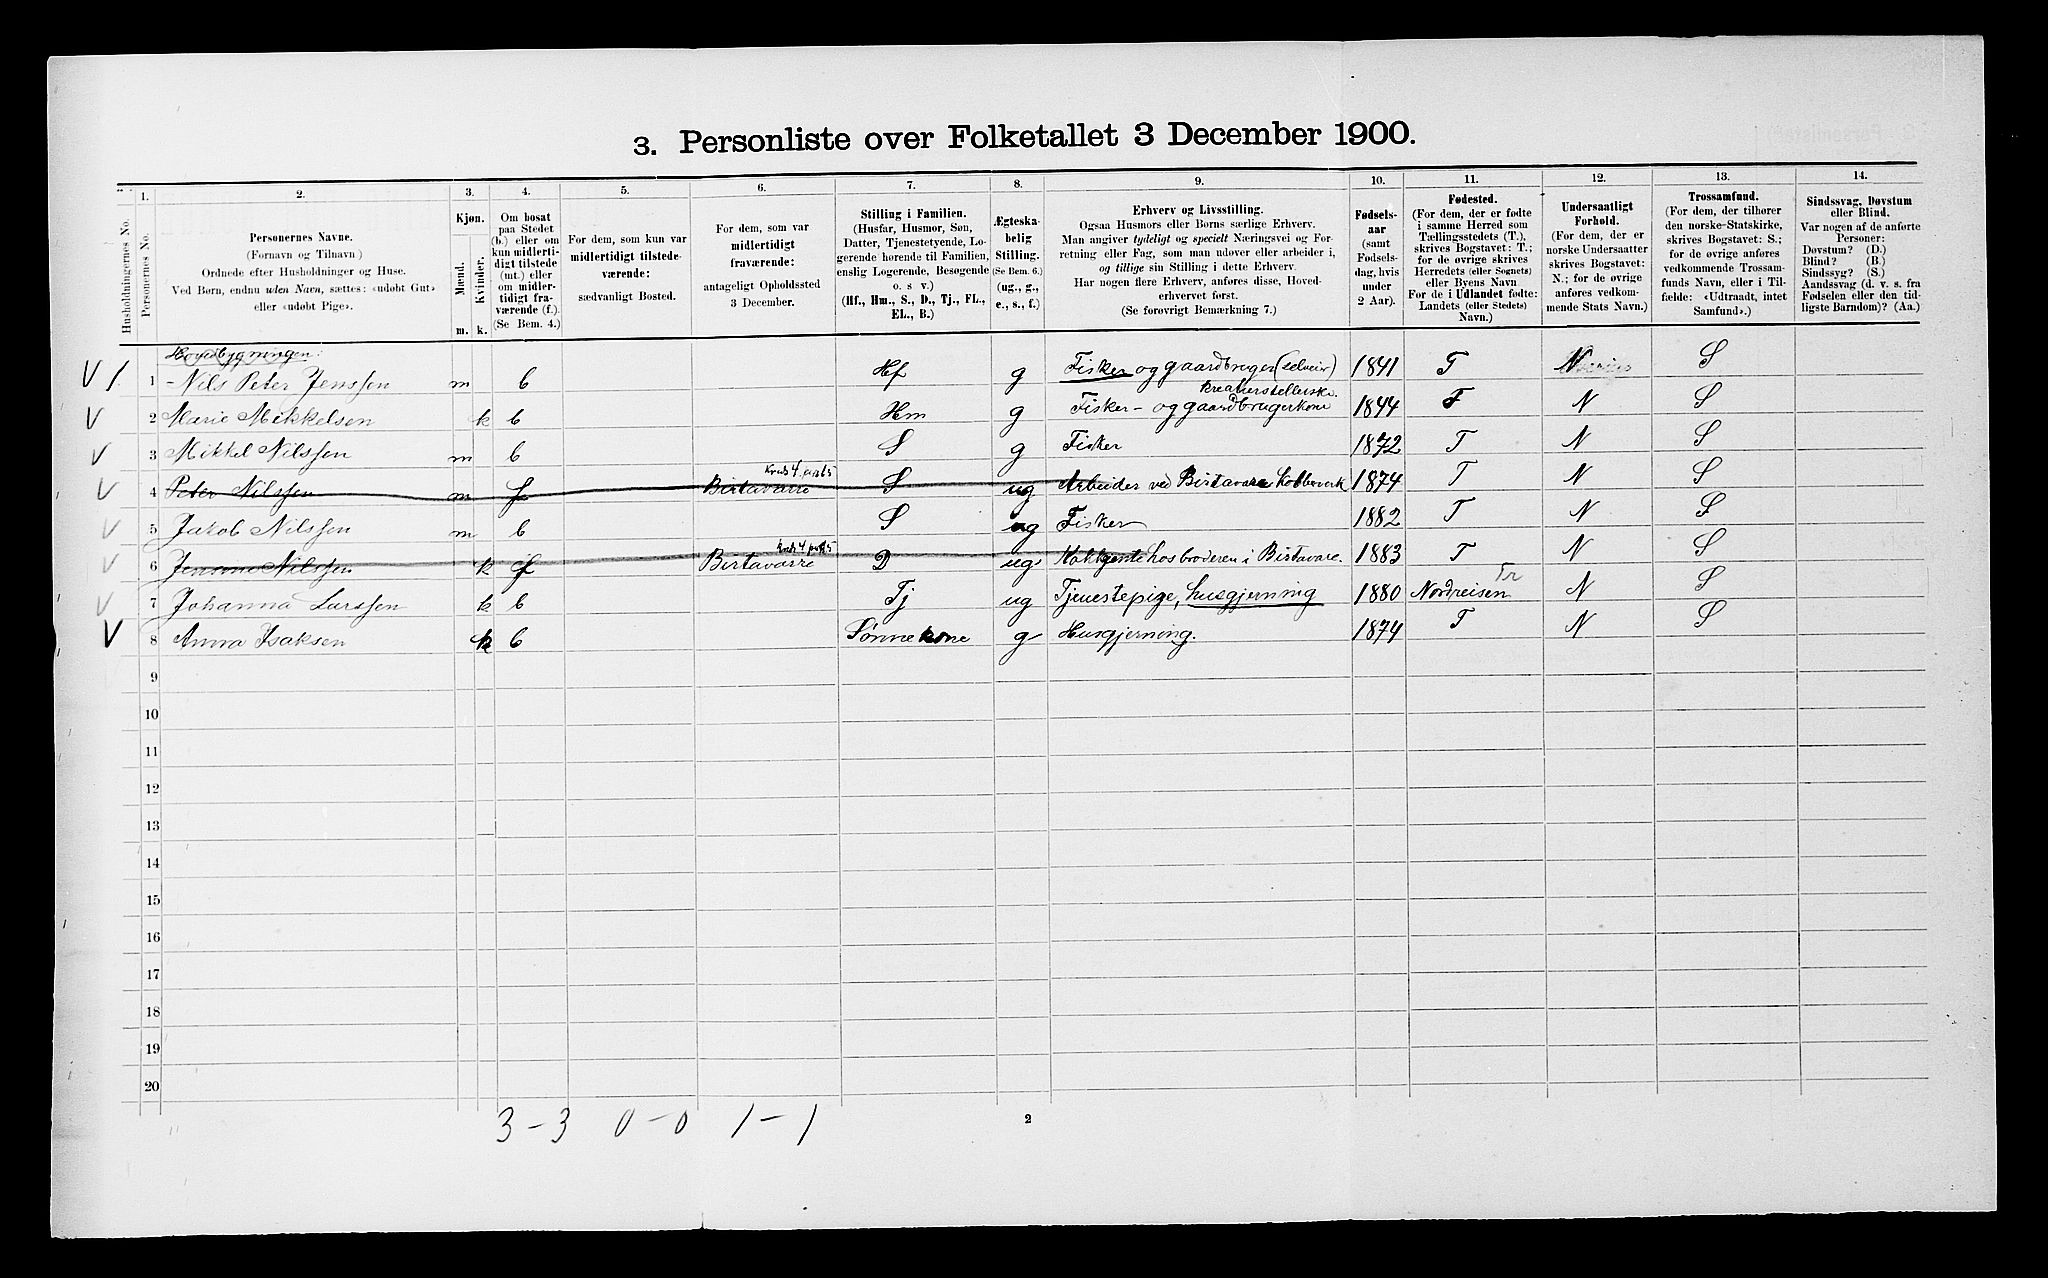 3. Personliste over Folketallet 3 December 1900.
1. 2. 3. 4. 5. 6. 7. 8. 9. 10. 11. 12. 13. 14.
Husholdningernes No.
Personernes No.
Personernes Navne.
(Fornavn og Tilnavn.)
Ordnede efter Husholdninger og Huse.
Ved Børn, endnu uden Navn, sættes: «udøbt Gut»
eller «udøbt Pige».
Kjøn.
Mænd.
Kvinder.
m. k.
Om bosat
paa Stedet
(b.) eller om
kun midlerti-
digt tilstede
(mt.) eller
om midler-
tidigt fra-
værende (f.).
(Se Bem. 4.)
For dem, som kun var
midlertidigt tilstede-
værende:
sædvanligt Bosted.
For dem, som var
midlertidigt
fraværende:
antageligt Opholdssted
3 December.
Stilling i Familien.
(Husfar, Husmor, Søn,
Datter, Tjenestetyende, Lo-
gerende hørende til Familien,
enslig Logerende, Besøgende
o. s v.)
(Hf., Hm., S., D., Tj., FL.,
EL., B.)
Ægteska-
belig
Stilling.
(Se Bem. 6.)
(ug., g.,
e., s., f.)
Erhverv og Livsstilling.
Ogsaa Husmors eller Børns særlige Erhverv.
Man angiver tydeligt og specielt Næringsvei og For-
retning eller Fag, som man udøver eller arbeider i,
og tillige sin Stilling i dette Erhverv.
Har nogen flere Erhverv, anføres disse, Hoved-
erhvervet først.
(Se forøvrigt Bemærkning 7.)
Fødsels-
aar
(samt
Fødsels-
dag, hvis
under
2 Aar).
Fødested.
(For dem, der er fødte
i samme Herred som
Tællingsstedets (T.),
skrives Bogstavet: T.;
for de øvrige skrives
Herredets (eller Sognets)
eller Byens Navn
For de i Udlandet fødte:
Landets (eller Stedets)
Navn.)
Undersaatligt
Forhold.
(For dem, der er
norske Undersaatter
skrives Bogstavet:
N.; for de øvrige
anføres vedkom-
mende Stats Navn.)
Trossamfund.
(For dem, der tilhører
den norske-Statskirke,
skrives Bogstavet: S.;
for de øvrige anføres
vedkommende Trossam-
funds Navn, eller i Til-
fælde: «Udtraadt, intet
Samfund».)
Sindssvag, Døvstum
eller Blind.
Var nogen af de anførte
Personer:
Døvstum? (D.)
Blind? (B.)
Sindssyg? (S.)
Aandssvag (d. v. s. fra
Fødselen eller den tid-
ligste Barndom)? (Aa.)
Hovedbygningen:
V 1. 1 -Nils Peter Jenssen m b Hf g Fisker og gaardbruger (selveier) 1841 T N S
V 2 Marie Mikkelsen k b Hm g Fisker- og gaardbrugerkone 1844 T N S
V 3 Mikkel Nilssen m b S g Fisker 1872 T N S
Kreds 4
V 4 Peter Nilssen m f Birtavarre S ug Arbeider ved Birtavare Kobberverk 1874 T N S
V 5 Jakob Nilssen m b S ug Fisker 1882 T N S
Kreds 4
V 6 Jensine Nilssen k f Birtavarre D ug hos broderen i Birtavare. 1883 T N S
V 7 Johanna Larssen k b Tj ug Tjenestepige, husgjerning 1880 Nordreisen Tr N S
V 8 Anna Isaksen k b Sønnekone g Husgjerning. 1874 T N S
9
10
11
12
13
14
15
16
17
18
19
20
3-3 0-0 1-1
2